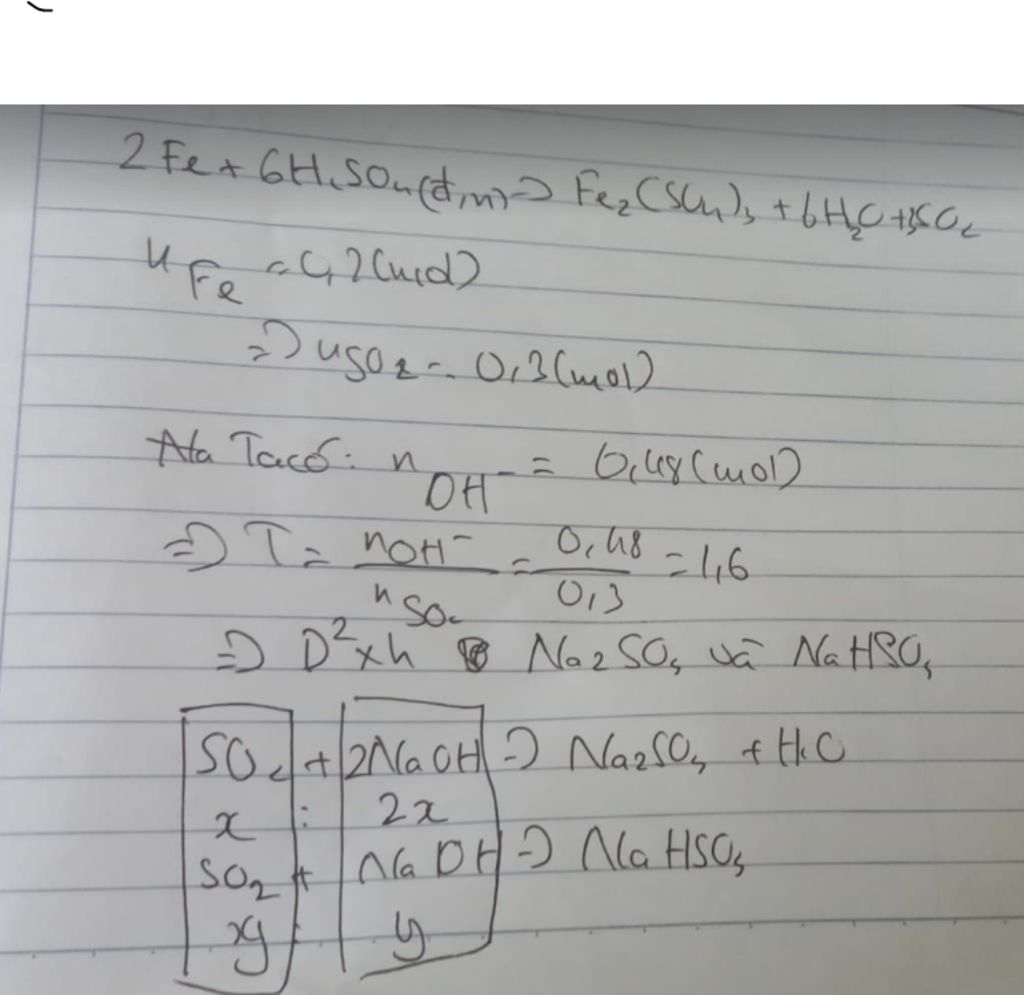 2Fe + 6H₂SO₄(đ,n) => Fe₂(SO₄)₃ + 6H₂O + 3SO₂
n Fe = 0,2(mol)
=> nSO₂ = 0,3(mol)
Ta có: n OH⁻ = 0,48(mol)
=> T = nOH⁻ / nSO₂ = 0,48 / 0,3 = 1,6
=> D²xh Na₂SO₃ và NaHSO₃
SO₂ + 2NaOH => Na₂SO₃ + H₂O
x : 2x
SO₂ + NaOH => NaHSO₃
y : y